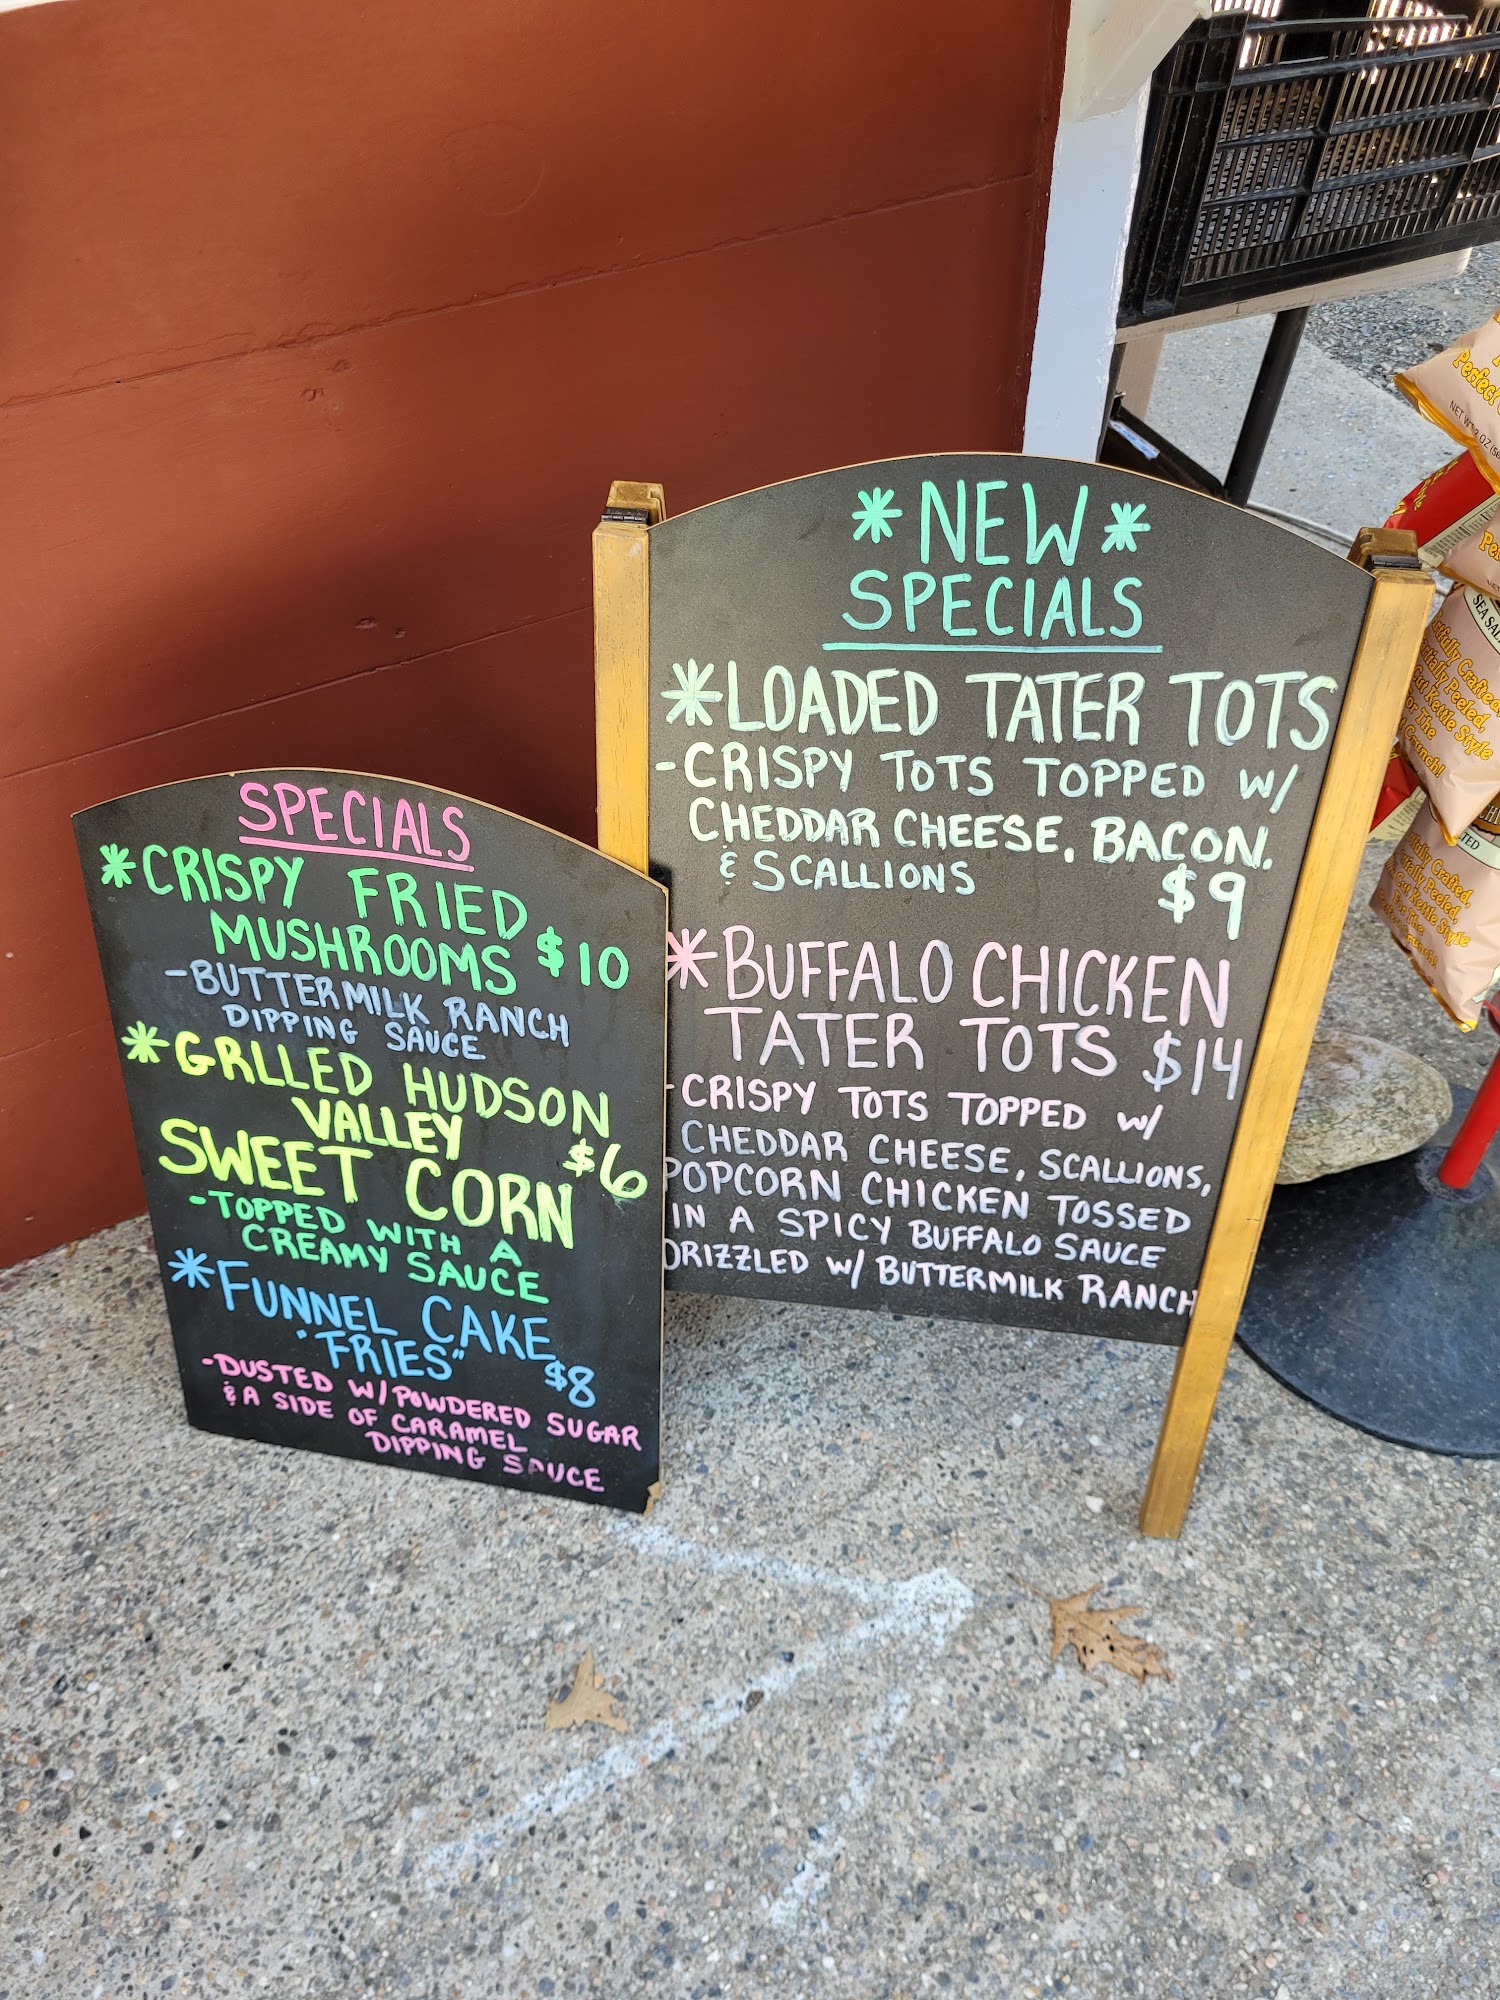 SPECIALS
*CRISPY FRIED
MUSHROOMS $10
-BUTTERMILK RANCH
DIPPING SAUCE
*GRLLED HUDSON
VALLEY
SWEET CORN $6
-TOPPED WITH A
CREAMY SAUCE
*FUNNEL CAKE
"FRIES" $8
-DUSTED W/POWDERED SUGAR
& A SIDE OF CARAMEL
DIPPING SAUCE
*NEW*
SPECIALS
*LOADED TATER TOTS
-CRISPY TOTS TOPPED W/
CHEDDAR CHEESE, BACON,
& SCALLIONS $9
*BUFFALO CHICKEN
TATER TOTS $14
-CRISPY TOTS TOPPED W/
CHEDDAR CHEESE, SCALLIONS,
POPCORN CHICKEN TOSSED
IN A SPICY BUFFALO SAUCE
DRIZZLED W/ BUTTERMILK RANCH
Perfect
NET WT. 2 OZ
SEA SAL
Crafted,
Peeled,
Cut Kettle Style
For The
Crunch!
Crafted,
Peeled,
Cut Kettle Style
For The
Crunch!